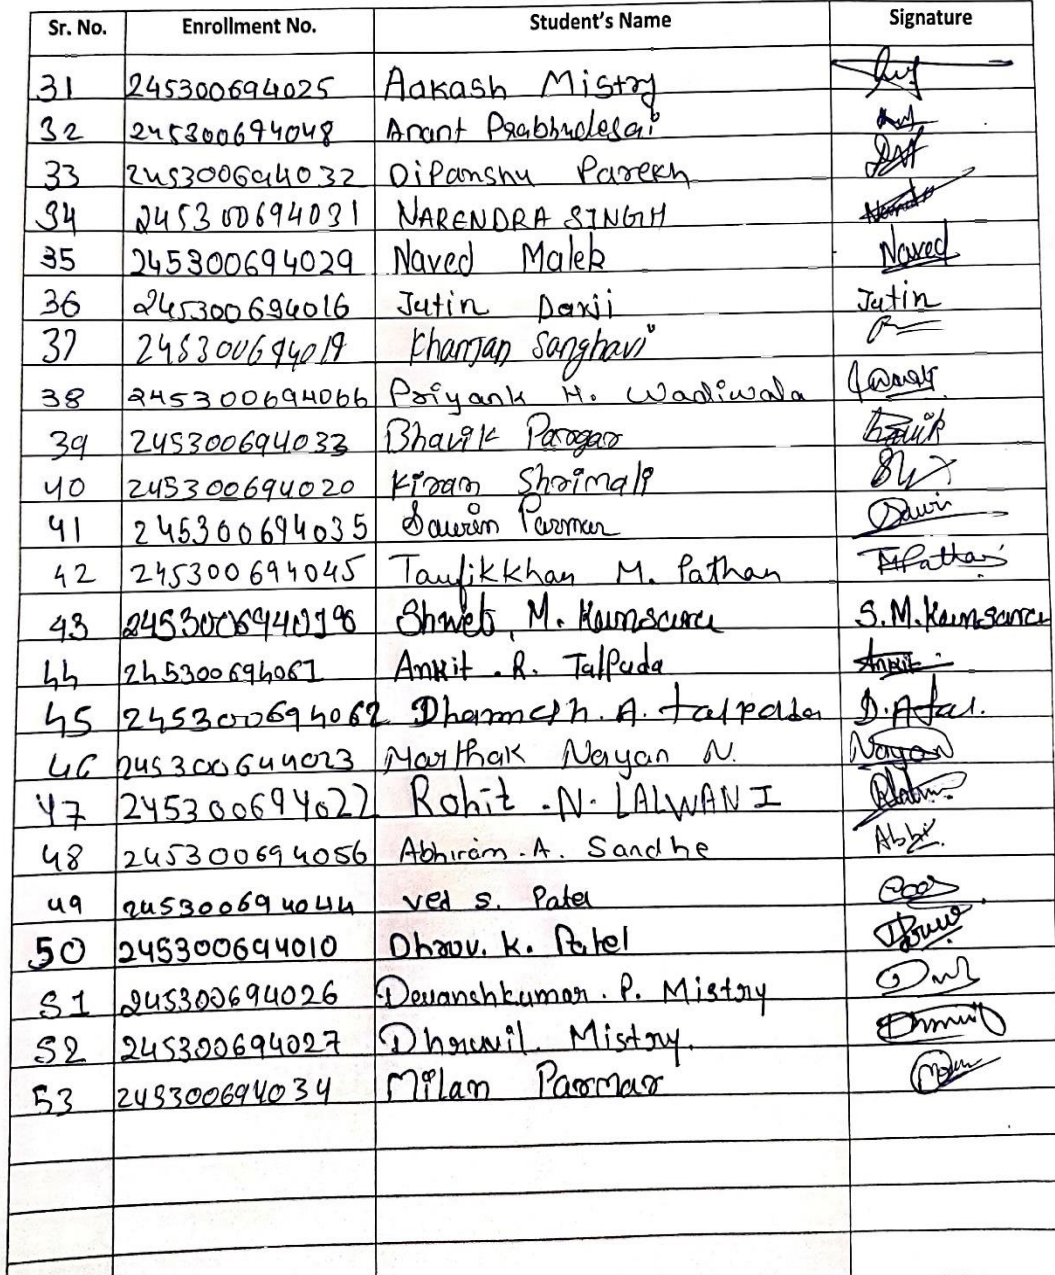 Sr. No. Enrollment No. Student's Name Signature
31 245300694025 Aakash Mistry
32 245300694048 Anant Prabhudesai
33 245300694032 Dipanshu Parekh
34 245300694031 NARENDRA SINGH
35 245300694029 Naved Malek Naved
36 245300694016 Jatin Darji Jatin
37 245300694019 Khanjan Sanghavi
38 245300694066 Priyank H. Wadiwala
39 245300694033 Bhavik Parogar
40 245300694020 Kiran Shrimali
41 245300694035 Saurin Parmar
42 245300694045 Taufikkhan M. Pathan T.M.Pathan
43 M. Kamsara S.M.Kamsara
44 245300694061 Ankit . R. Talpada Ankit
45 245300694062 Dharmesh. A. talpada D.A.tal.
46 245300644023 Marthak Nayan N. Nayan
47 245300694022 Rohit .N. LALWANI
48 245300694056 Abhiram.A. Sandhe Abhi.
49 245300694044 ved s. Patel
50 245300694010 Dhruv. K. Patel
51 245300694026 Devanshkumar. P. Mistry
52 245300694027 Dhruvil. Mistry.
53 245300694034 Milan Parmar